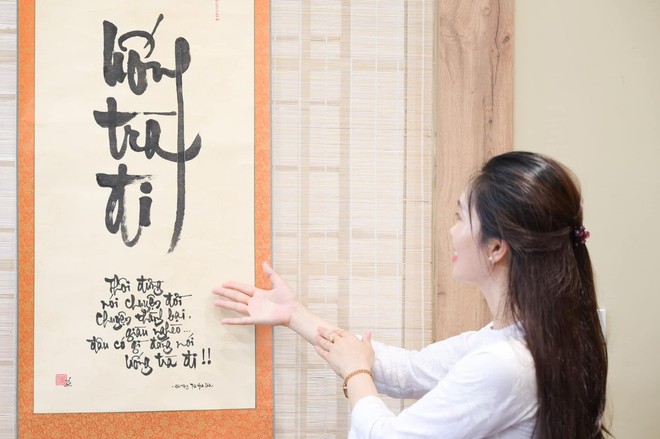 Uống
trà
đi
Thôi đừng
nói chuyện đời
chuyện thành bại,
giàu nghèo...
đâu có gì đáng nói
uống trà đi !!